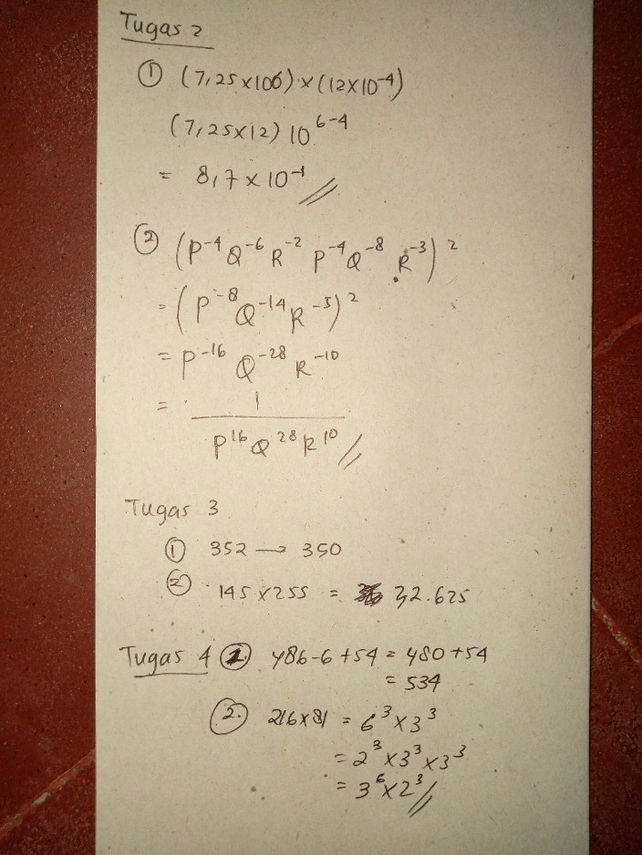 Tugas 2
① (7,25 x 106) x (12 x 10⁻⁴)
(7,25 x 12) 10⁶⁻⁴
= 8,7 x 10⁻¹
② (P⁻⁴ Q⁻⁶ R⁻² P⁻⁴ Q⁻⁸ R⁻³)²
= (P⁻⁸ Q⁻¹⁴ R⁻⁵)²
= P⁻¹⁶ Q⁻²⁸ R⁻¹⁰
= 1
P¹⁶ Q²⁸ R¹⁰
Tugas 3
① 352 → 350
② 145 x 255 = 32.625
Tugas 4 ① 486-6+54 = 480+54
= 534
②. 216 x 81 = 6³ x 3³
= 2³ x 3³ x 3³
= 3⁶ x 2³